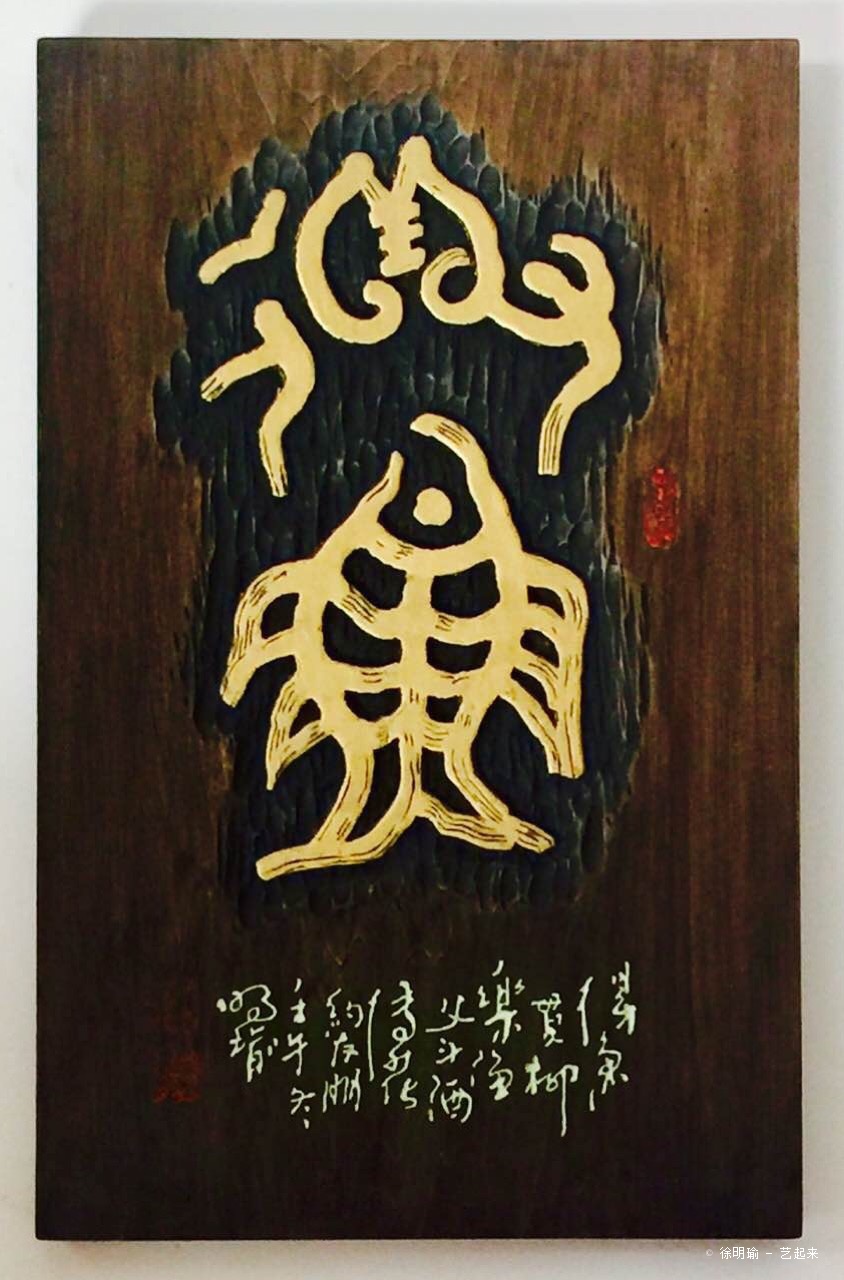 得魚
得魚
貫柳
樂漁
父斗酒
傳
約友朋
壬午冬
明瑜
© 徐明瑜 - 艺起来